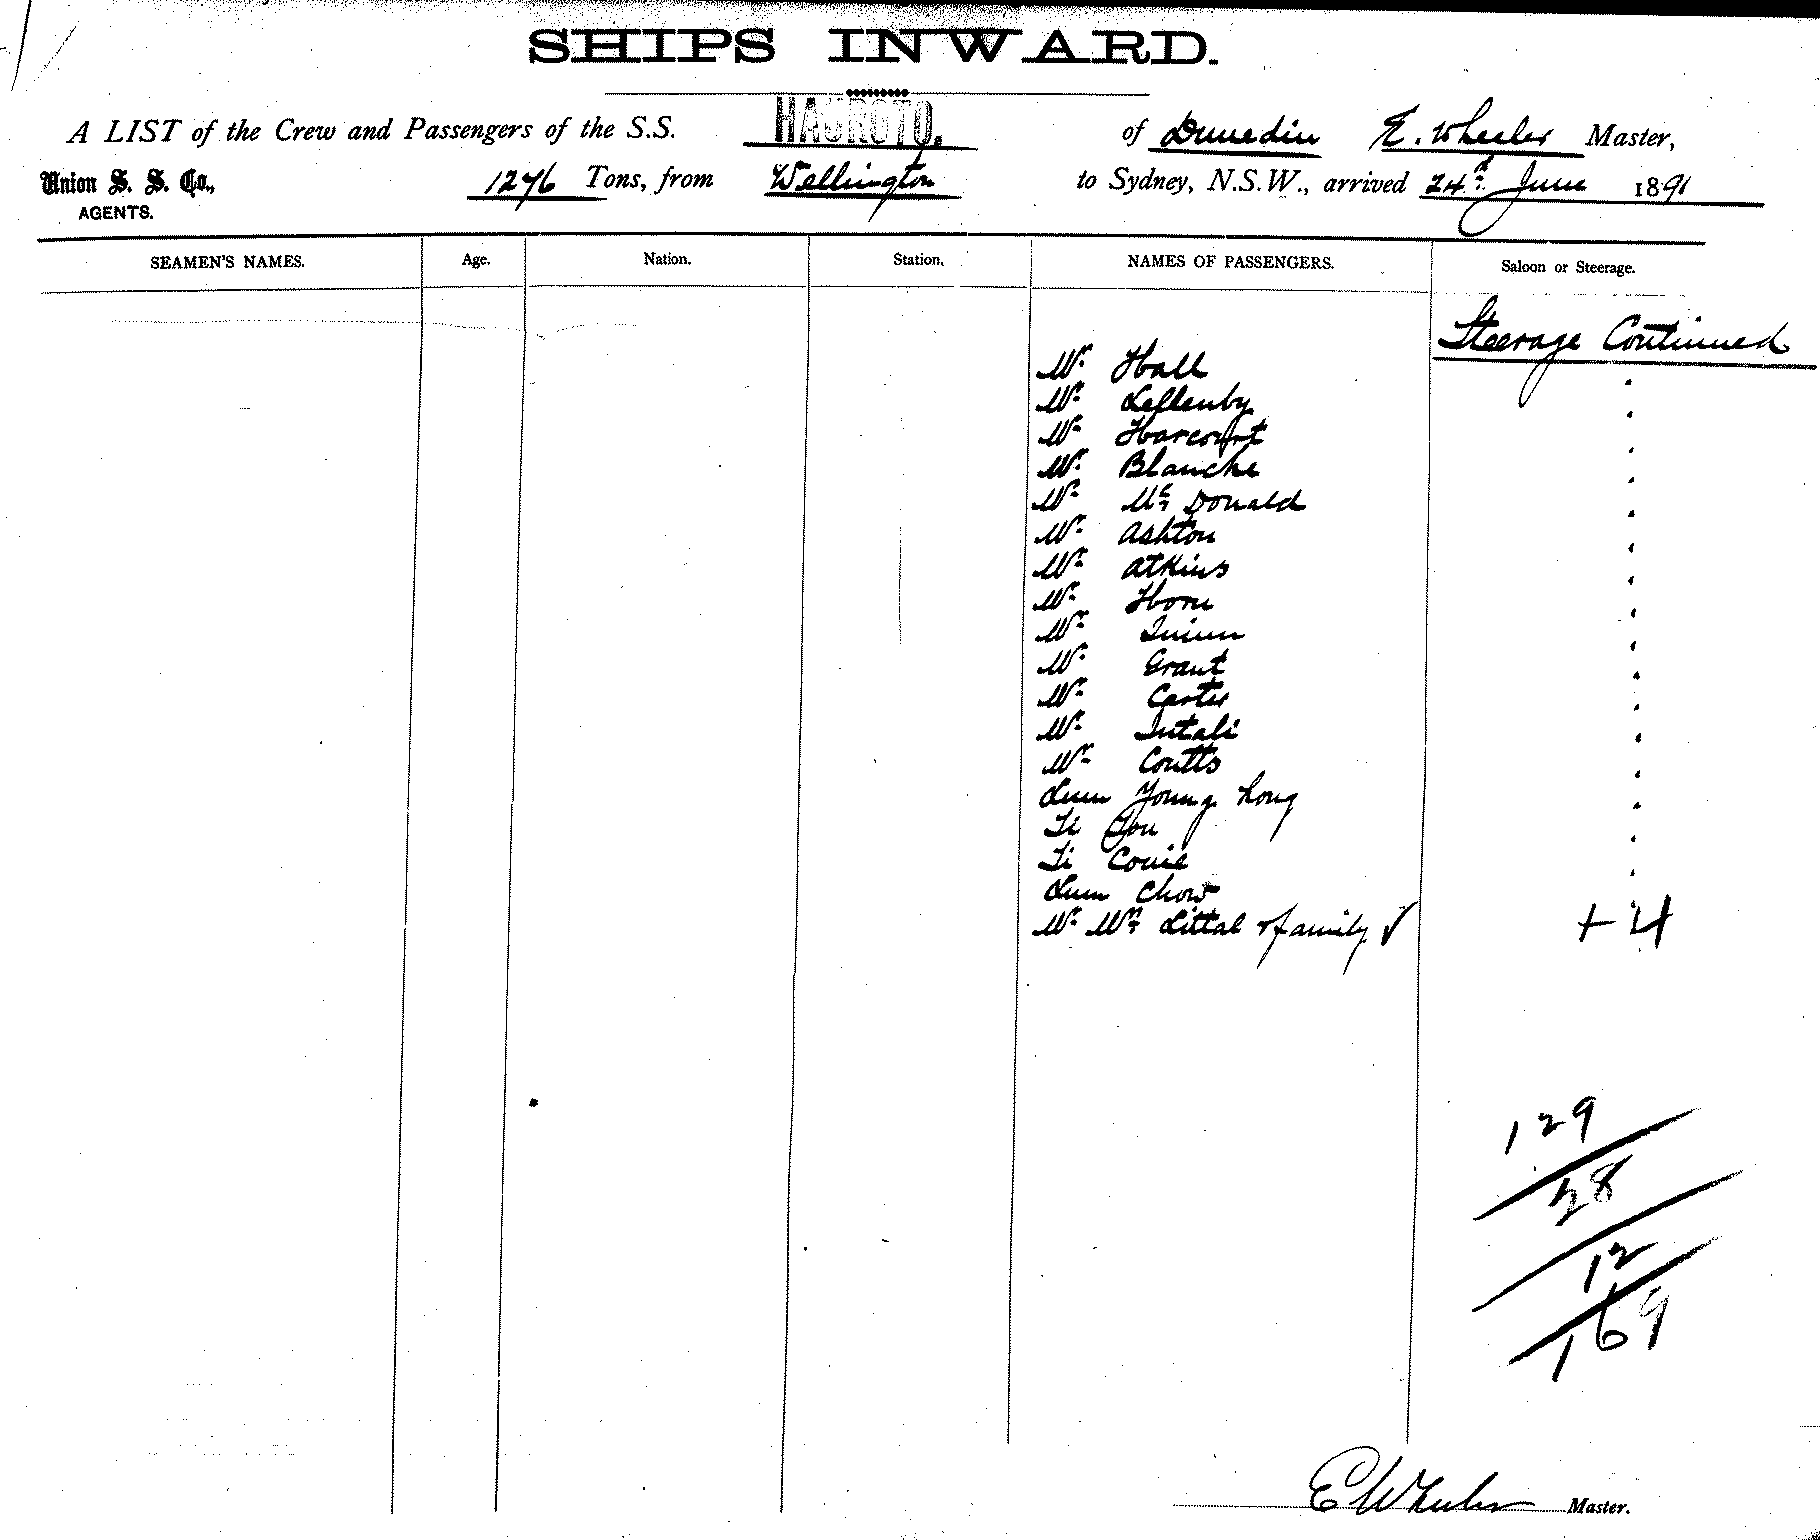 SHIPS INWARD.
A LIST of the Crew and Passengers of the S.S. HAUROTO. of Dunedin E. Wheeler Master,
Union S. S. Co., 1276 Tons, from Wellington to Sydney, N.S.W., arrived 24th June 1891
AGENTS.
SEAMEN'S NAMES. Age. Nation. Station. NAMES OF PASSENGERS. Saloon or Steerage.
Steerage Continued
Mr Hall
Mr
Mr Harcourt
Mr Blanche
Mr McDonald
Mr Ashton
Mr Atkins
Mr Horn
Mr
Mr Grant
Mr Carter
Mr
Mr Coutts
Lum Young Long
Ti
Ti
Lum Chow
Mr Mrs Littal & family ✓ + 4
129
28
12
169
E Wheeler Master.